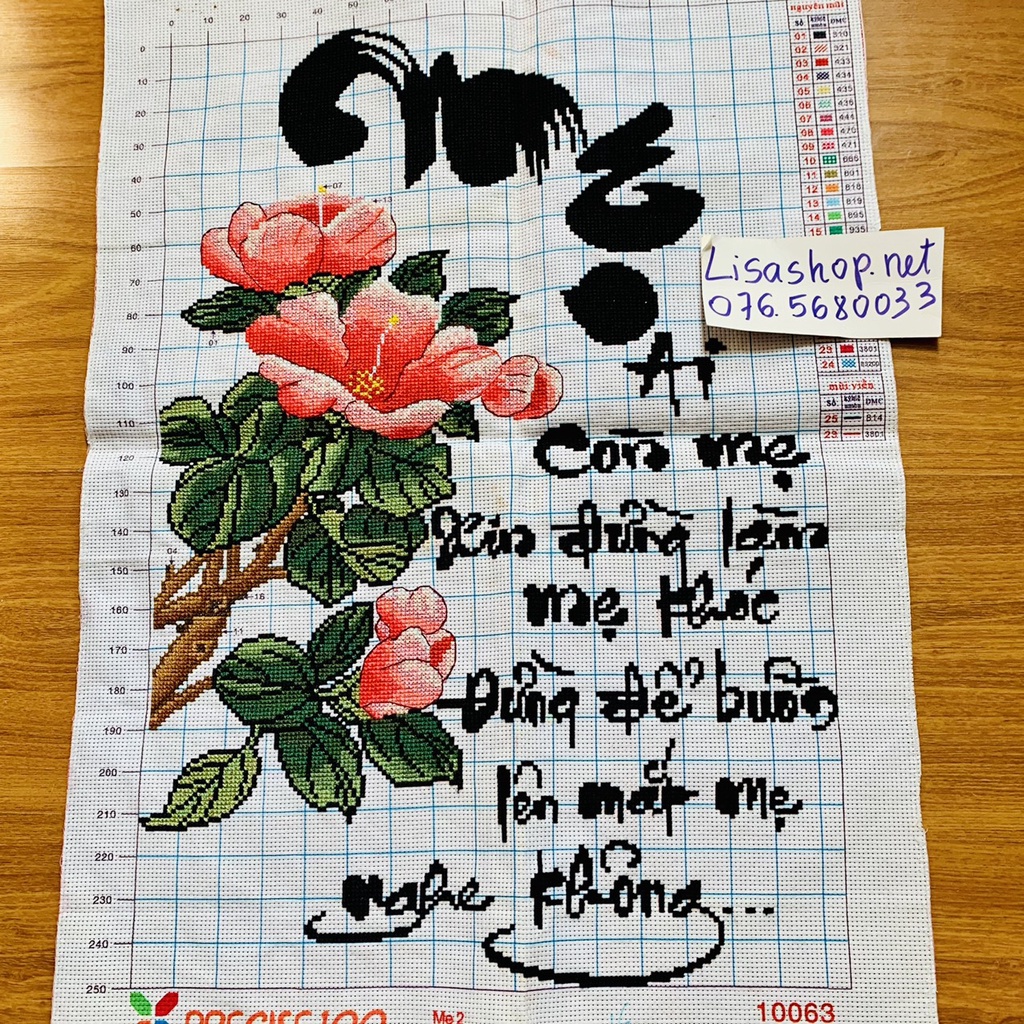 nguyên mũi
số ký hiệu DMC
01 310
02 321
03 433
04 434
05 435
06 436
07 444
08 470
09 471
10
11
12
13 819
14
15 935
Lisashop.net
076.5680033
23 3801
24
mũi viền
số ký hiệu DMC
25 814
29 3801
0 10 20 30 40 50 60
0
10
20
30
40
50
60
70
80
90
100
110
120
130
140
150
160
170
180
190
200
210
220
230
240
250
07
13
01
04
16
11
Mẹ
Ai
Còn mẹ
Xin đừng làm
mẹ khóc
Đừng để buồn
lên mắt mẹ
nghe không...
PRECISE 100
Mẹ 2
10063